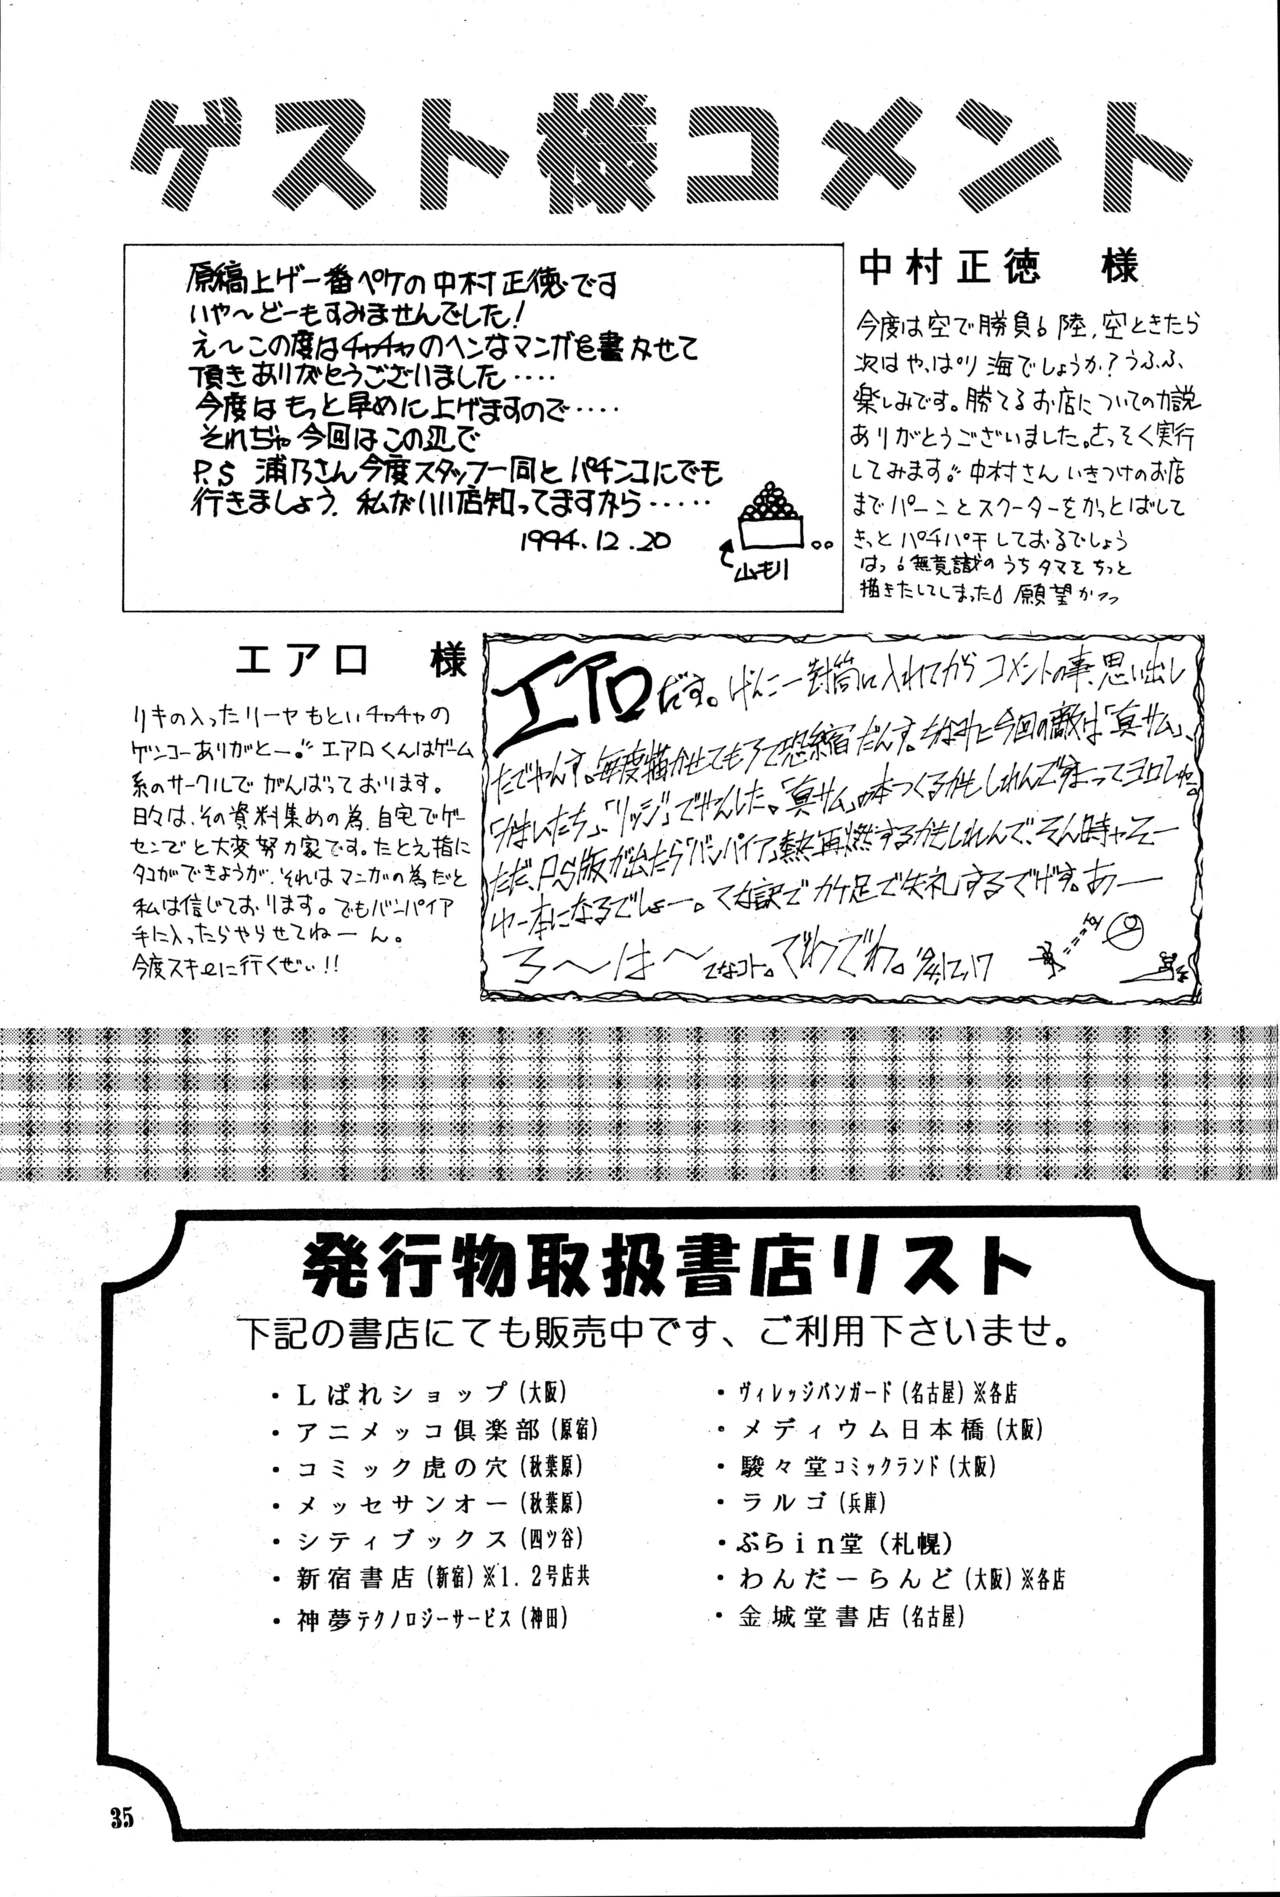 ゲスト様コメント
原稿上げ一番ペケの中村正徳です
いや〜どーもすみませんでした!
え〜この度はチャチャのヘンなマンガを書かせて
頂きありがとうございました‥‥
今度はもっと早めに上げますので‥‥
それぢゃ今回はこの辺で
P.S 浦乃さん今度スタッフ一同とパチンコにでも
行きましょう. 私がいい店知ってますから‥‥
1994.12.20
山もり
中村正徳 様
今度は空で勝負。陸,空ときたら
次はやっぱり海でしょうか?うふふ、
楽しみです。勝てるお店についての力説
ありがとうございました。さっそく実行
してみます。中村さんいきつけのお店
までパーンとスクーターをかっとばして
きっとパチパチしておるでしょう
はっ。無意識のうちタマをちっと
描きたしてしまった。願望かっっ
エアロ 様
リキの入ったリーヤもといチャチャの
ゲンコーありがとー。エアロくんはゲーム
系のサークルでがんばっております。
日々は、その資料集めの為、自宅でゲー
センでと大変努力家です。たとえ指に
タコができようが、それはマンガの為だと
私は信じております。でもバンパイア
手に入ったらやらせてねーん。
今度スキーに行くぜい!!
エアロだす。げんこー封筒に入れてからコメントの事、思い出し
たでやんす。毎度描かせてもろて恐縮だんす。ちなみに今回の敵は「真サム」、
「かまいたち」、「リッジ」でやんした。「真サム」の本つくるかもしれんですよってヨロしゅ。
ただ、PS版が出たら「バンパイア」熱再燃するかもしれんで、そん時ゃそー
ゆー本になるでしょー。てな訳でカケ足で失礼するでげす。あー
ろ〜は〜 てなコト。でわでわ。'94,12,17
発行物取扱書店リスト
下記の書店にても販売中です、ご利用下さいませ。
・Lぱれショップ(大阪)
・アニメッコ倶楽部(原宿)
・コミック虎の穴(秋葉原)
・メッセサンオー(秋葉原)
・シティブックス(四ツ谷)
・新宿書店(新宿)※1.2号店共
・神夢テクノロジーサービス(神田)
・ヴィレッジバンガード(名古屋)※各店
・メディウム日本橋(大阪)
・駿々堂コミックランド(大阪)
・ラルゴ(兵庫)
・ぶらin堂(札幌)
・わんだーらんど(大阪)※各店
・金城堂書店(名古屋)
35